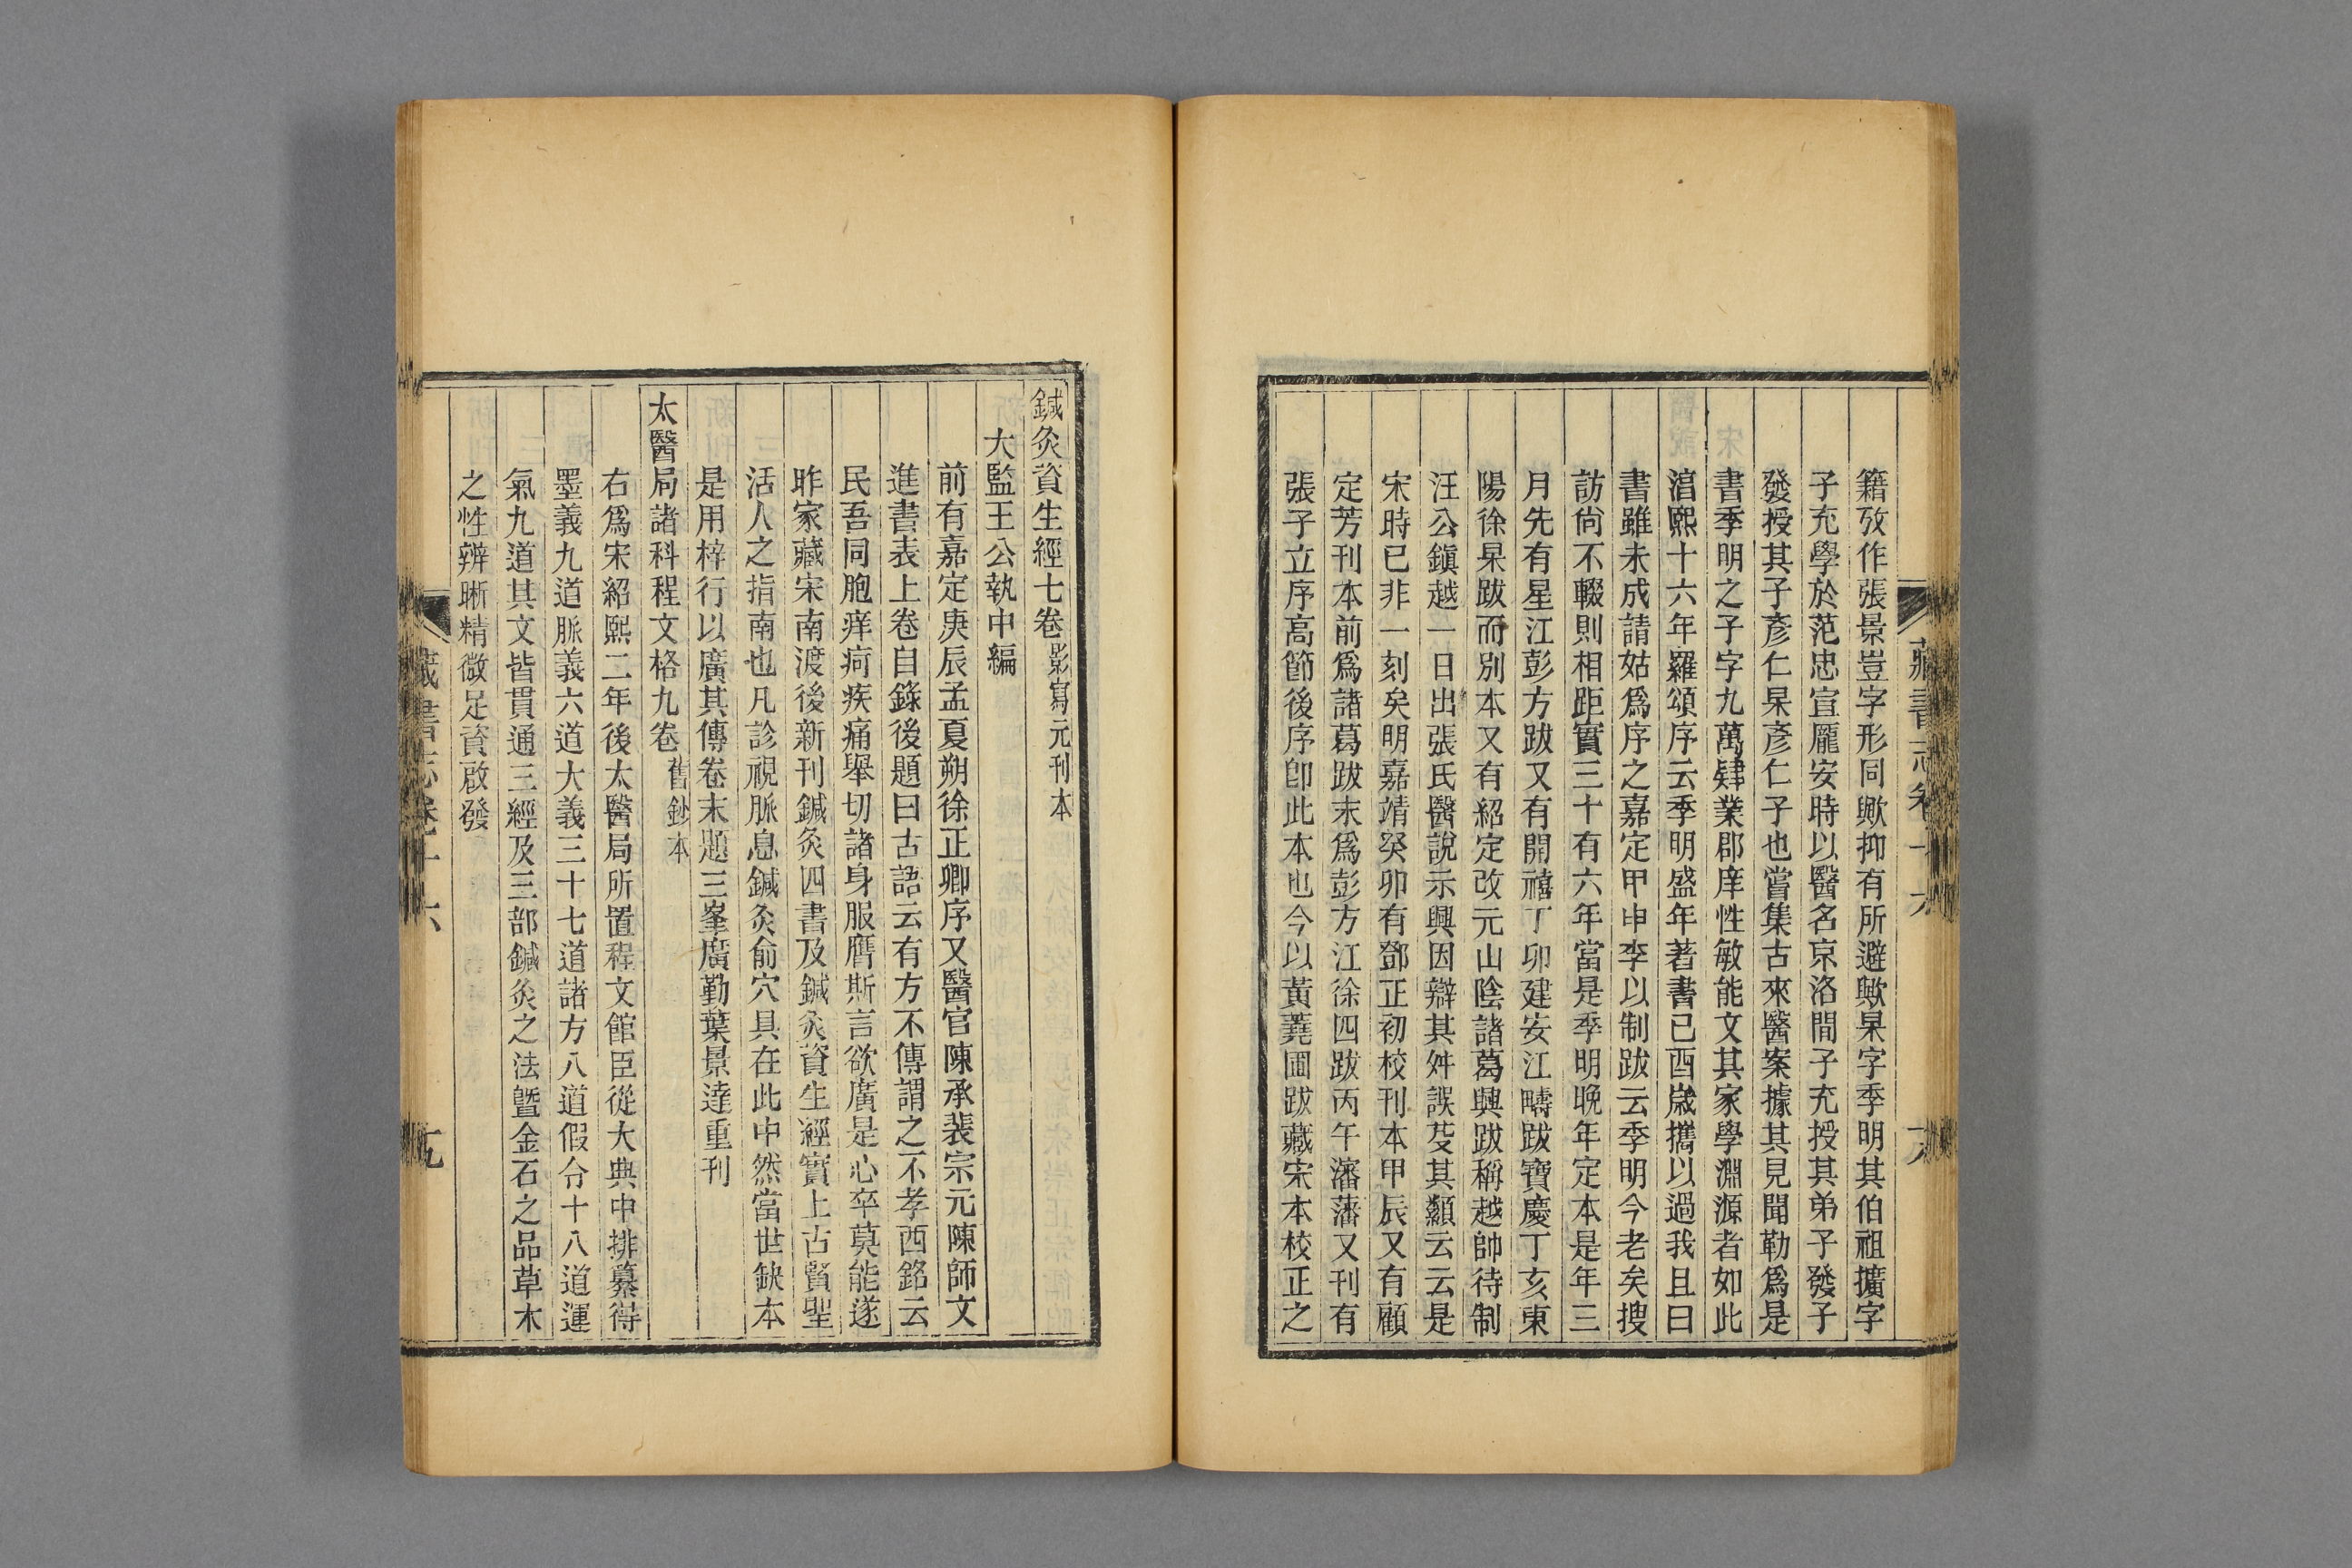 籍攷作張景豈字形同歟抑有所避歟杲字季明其伯祖擴字
子充學於范忠宣龐安時以醫名京洛間子充授其弟子發子
發授其子彥仁杲彥仁子也嘗集古來醫案據其見聞勒爲是
書季明之子字九萬肄業郡庠性敏能文其家學淵源者如此
湻熙十六年羅頌序云季明盛年著書已酉歲攜以過我且曰
書雖未成請姑爲序之嘉定甲申李以制跋云季明今老矣搜
訪尙不輟則相距實三十有六年當是季明晚年定本是年三
月先有星江彭方跋又有開禧丁卯建安江疇跋寶慶丁亥東
陽徐杲跋而別本又有紹定改元山陰諸葛興跋稱越帥待制
汪公鎭越一日出張氏醫說示興因辯其舛誤芟其纇云云是
宋時已非一刻矣明嘉靖癸卯有鄧正初校刊本甲辰又有顧
定芳刊本前爲諸葛跋末爲彭方江徐四跋丙午瀋藩又刊有
張子立序高節後序卽此本也今以黃蕘圃跋藏宋本校正之
鍼灸資生經七卷影寫元刊本
大監王公執中編
前有嘉定庚辰孟夏朔徐正卿序又醫官陳承裴宗元陳師文
進書表上卷自錄後題曰古語云有方不傳謂之不孝西銘云
民吾同胞痒疴疾痛舉切諸身服膺斯言欲廣是心卒莫能遂
昨家藏宋南渡後新刊鍼灸四書及鍼灸資生經實上古賢聖
活人之指南也凡診視脈息鍼灸俞穴具在此中然當世缺本
是用梓行以廣其傳卷末題三峯廣勤葉景逹重刊
太醫局諸科程文格九卷舊鈔本
右爲宋紹熙二年後太醫局所置程文館臣從大典中排纂得
墨義九道脈義六道大義三十七道諸方八道假令十八道運
氣九道其文皆貫通三經及三部鍼灸之法曁金石之品草木
之性辨晰精微足資啟發
藏書志卷十六